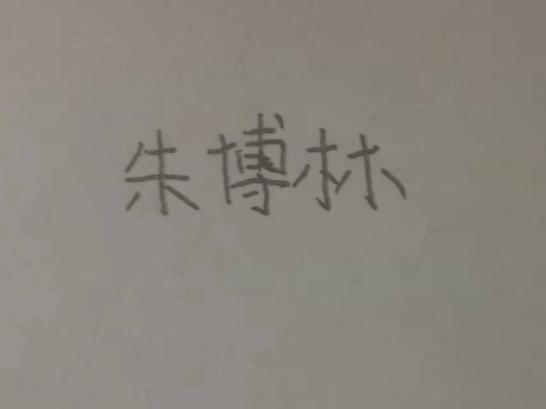 朱博林